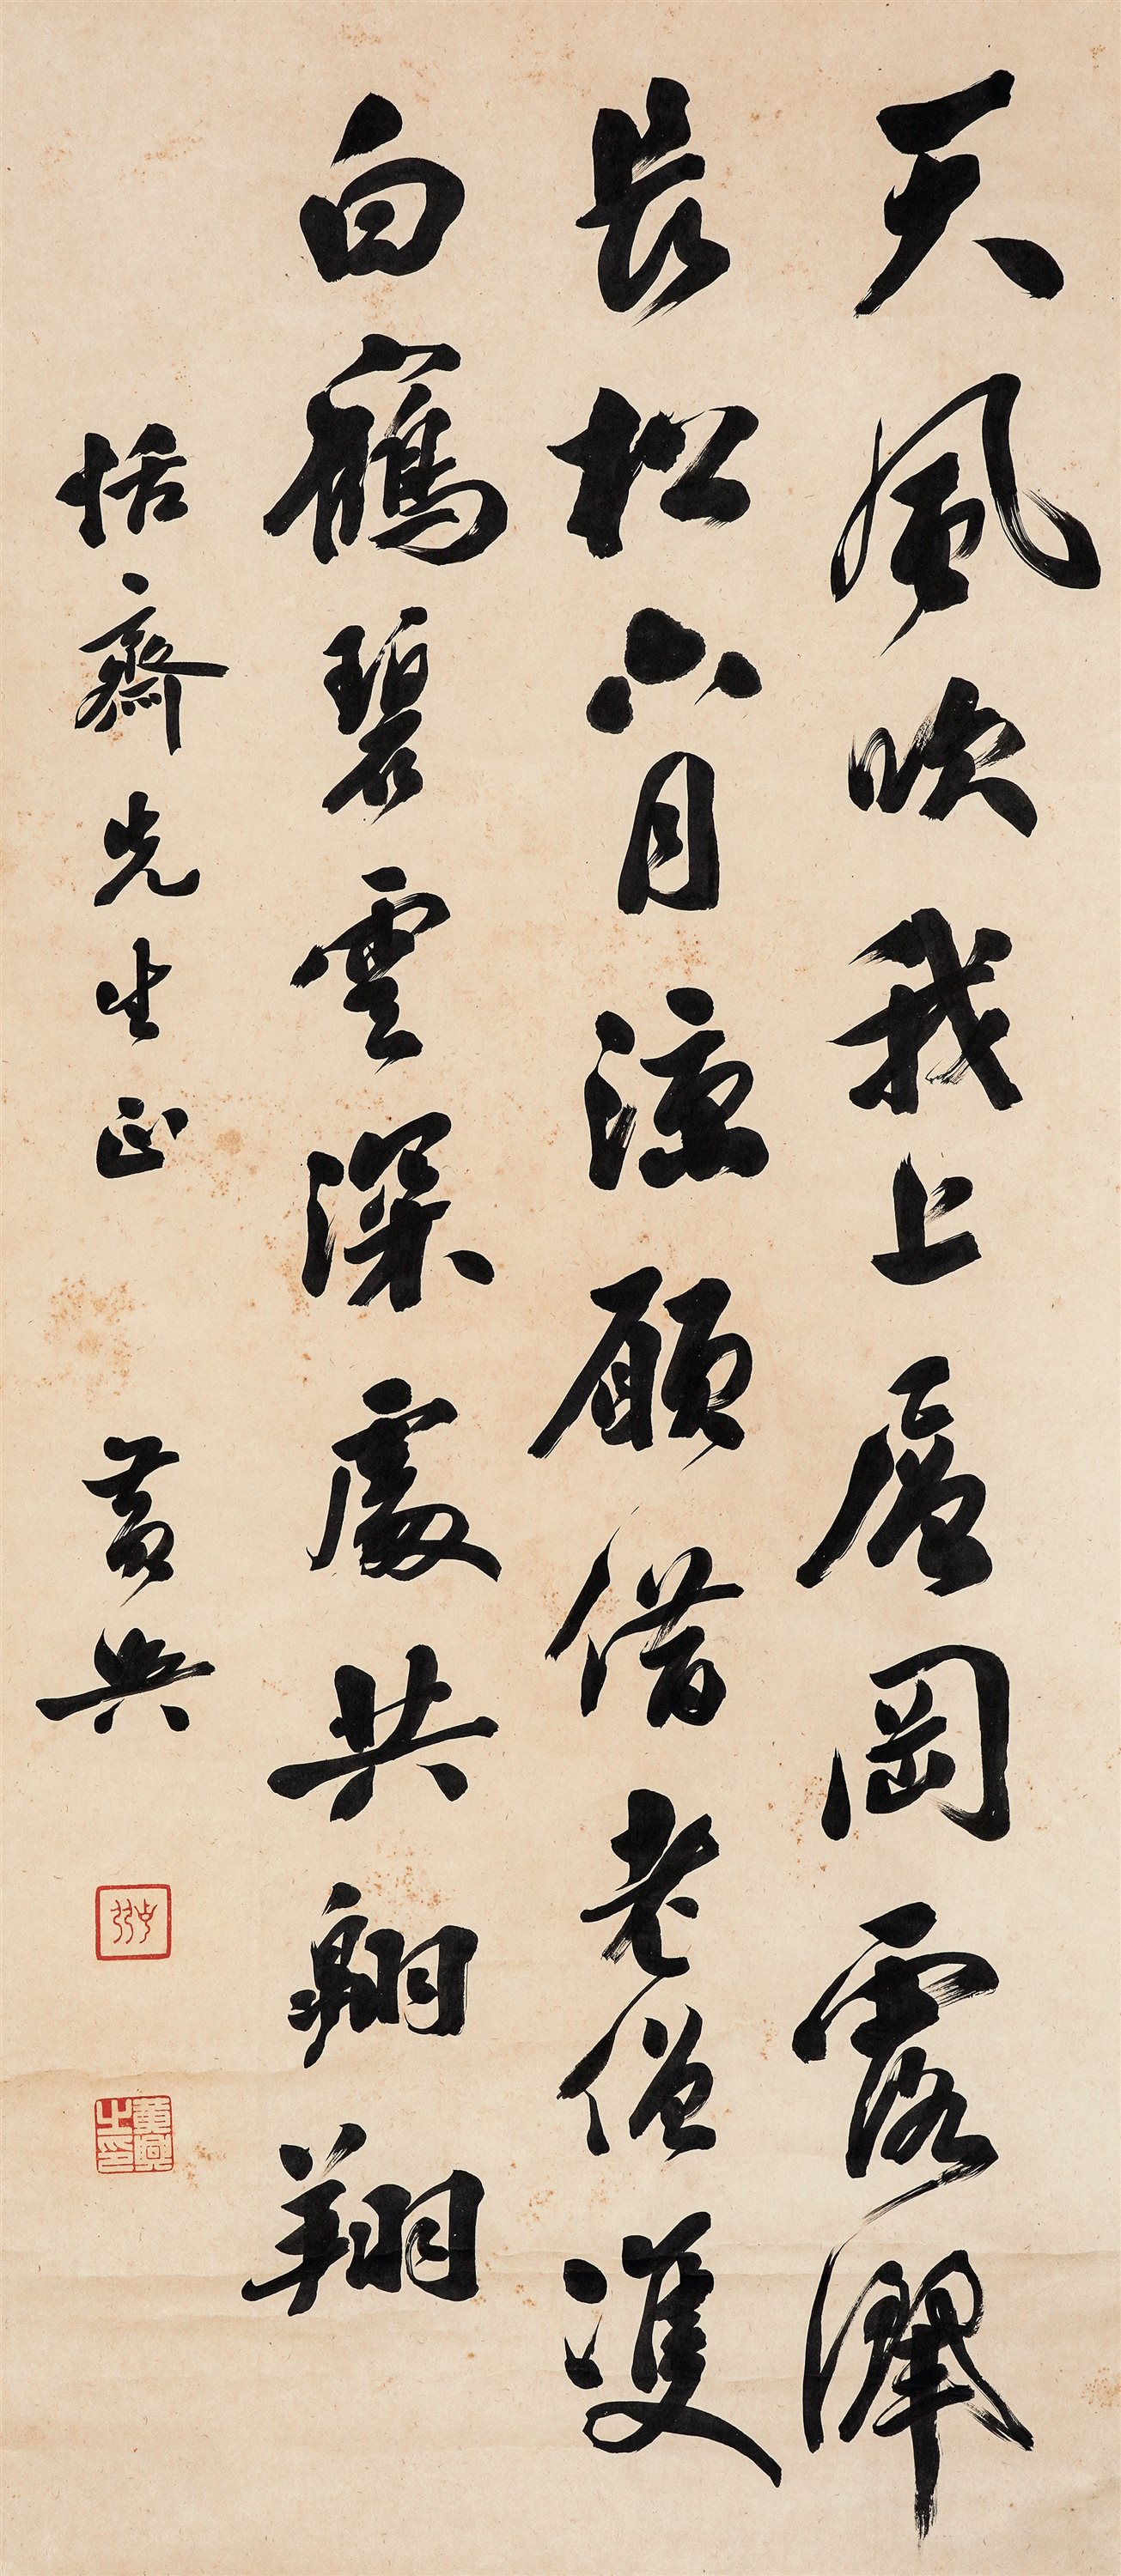 天風吹我上層岡露灑
長松六月涼願借老僧雙
白鶴碧雲深處共翱翔
恬齋先生正 黃興
黃興之印